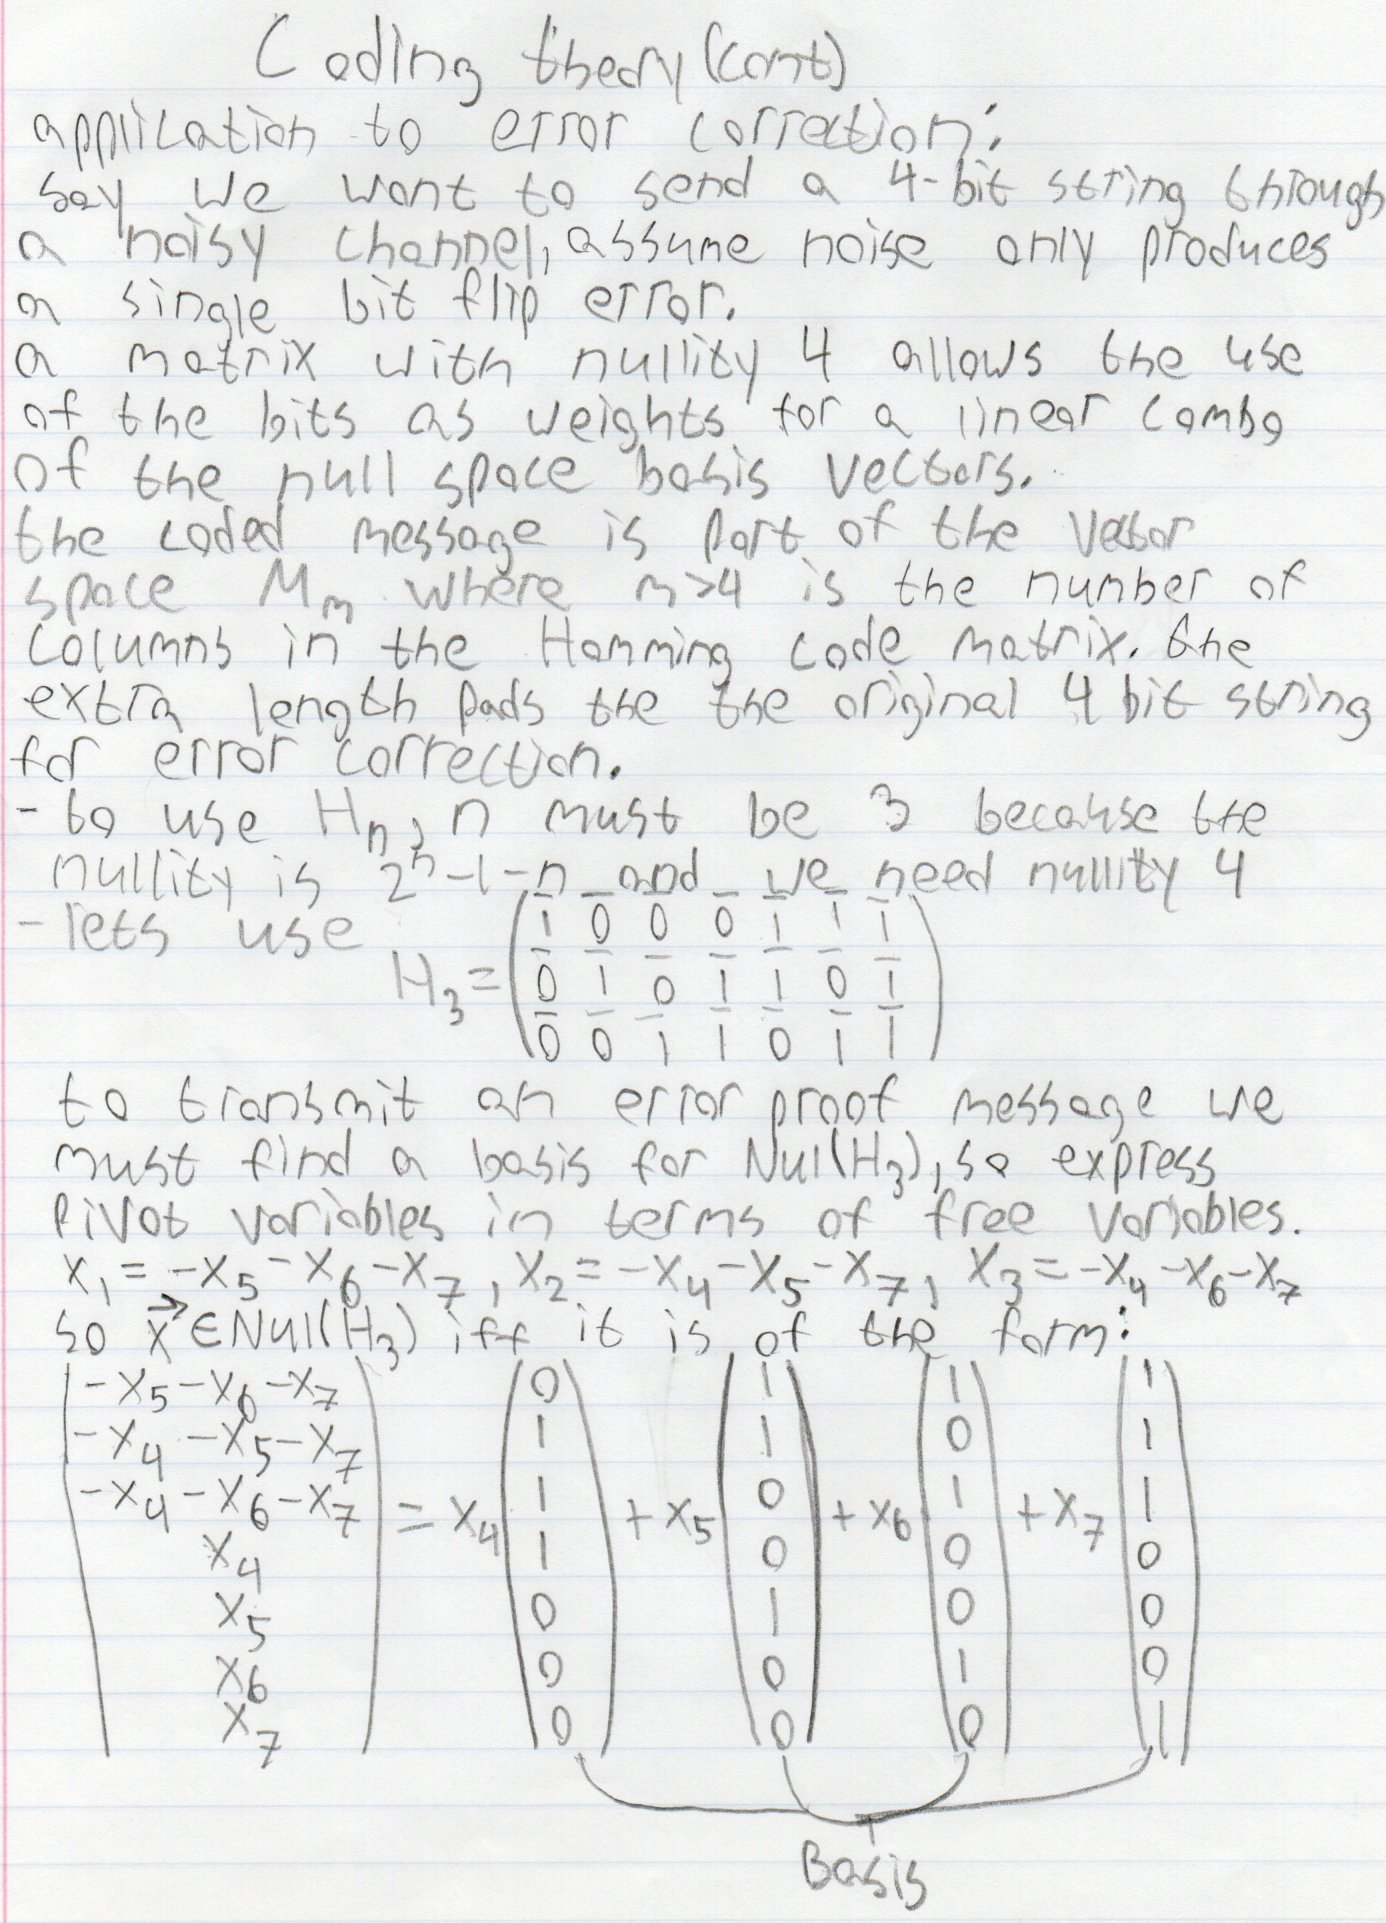 Coding theory (cont)
application to error correction:
say we want to send a 4-bit string through
a noisy channel, assume noise only produces
a single bit flip error.
a matrix with nullity 4 allows the use
of the bits as weights for a linear combo
of the null space basis vectors.
the coded message is part of the vector
space M_m where m>4 is the number of
columns in the Hamming code matrix. the
extra length pads the the original 4 bit string
for error correction.
- to use H_n, n must be 3 because the
nullity is 2^n-1-n and we need nullity 4
- lets use
1 0 0 0 1 1 1
H_3 = 0 1 0 1 1 0 1
0 0 1 1 0 1 1
to transmit an error proof message we
must find a basis for Nul(H_3), so express
pivot variables in terms of free variables.
x_1 = -x_5 -x_6 -x_7, x_2 = -x_4 -x_5 -x_7, x_3 = -x_4 -x_6 -x_7
so x⃗ ∈ Nul(H_3) iff it is of the form:
-x_5 -x_6 -x_7 0 1 1 1
-x_4 -x_5 -x_7 1 1 0 1
-x_4 -x_6 -x_7 = x_4 1 + x_5 0 + x_6 1 + x_7 1
x_4 1 0 0 0
x_5 0 1 0 0
x_6 0 0 1 0
x_7 0 0 0 1
Basis